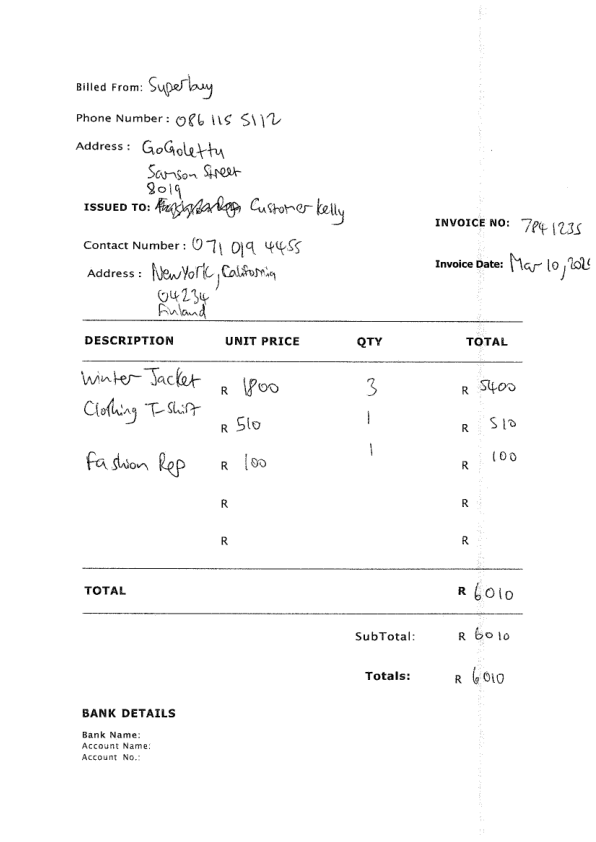 Billed From: Superbuy
Phone Number : 086 115 5112
Address : GoGoletty
Samson Street
8019
ISSUED TO: Customer Kelly
INVOICE NO: 7841235
Contact Number : 071 019 4455
Invoice Date: Mar 10,
Address : NewYork, California
04234
Finland
DESCRIPTION UNIT PRICE QTY TOTAL
Winter Jacket R 1800 3 R 5400
Clothing T-Shift R 510 1 R 510
Fashion Rep R 100 1 R 100
R R
R R
TOTAL R 6010
SubTotal: R 6010
Totals: R 6010
BANK DETAILS
Bank Name:
Account Name:
Account No.: